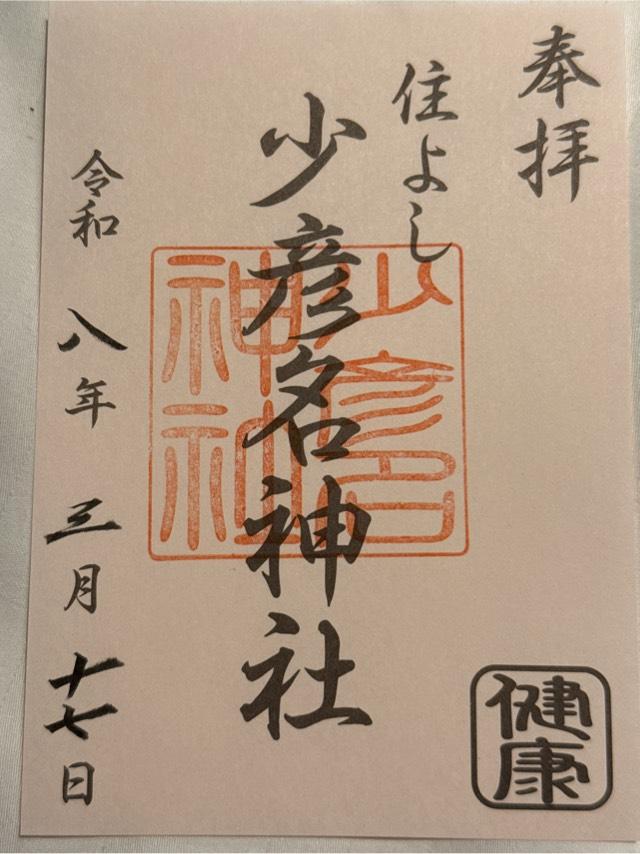 奉拝
住よし
少彦名神社
少彦名
神社
令和八年三月十七日
健康